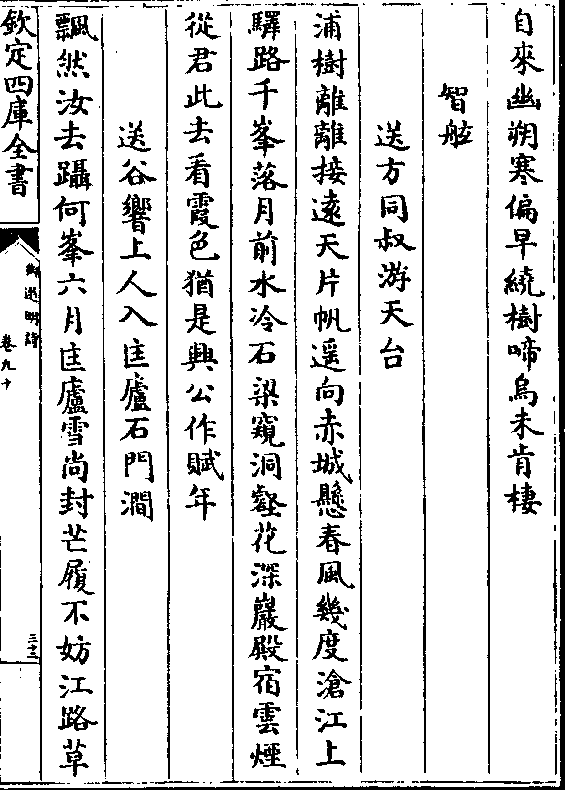 自來幽朔寒偏早繞樹啼烏未肯棲
智舷
送方同叔游天台
浦樹離離接遠天片帆遥向赤城懸春風幾度滄江上
驛路千峯落月前水冷石梁窺洞壑花深巖殿宿雲煙
從君此去看霞色猶是興公作賦年
送谷響上人入匡廬石門澗
飄然汝去躡何峯六月匡廬雪尚封芒履不妨江路草
欽定四庫全書
御選明詩
卷九十
三十三